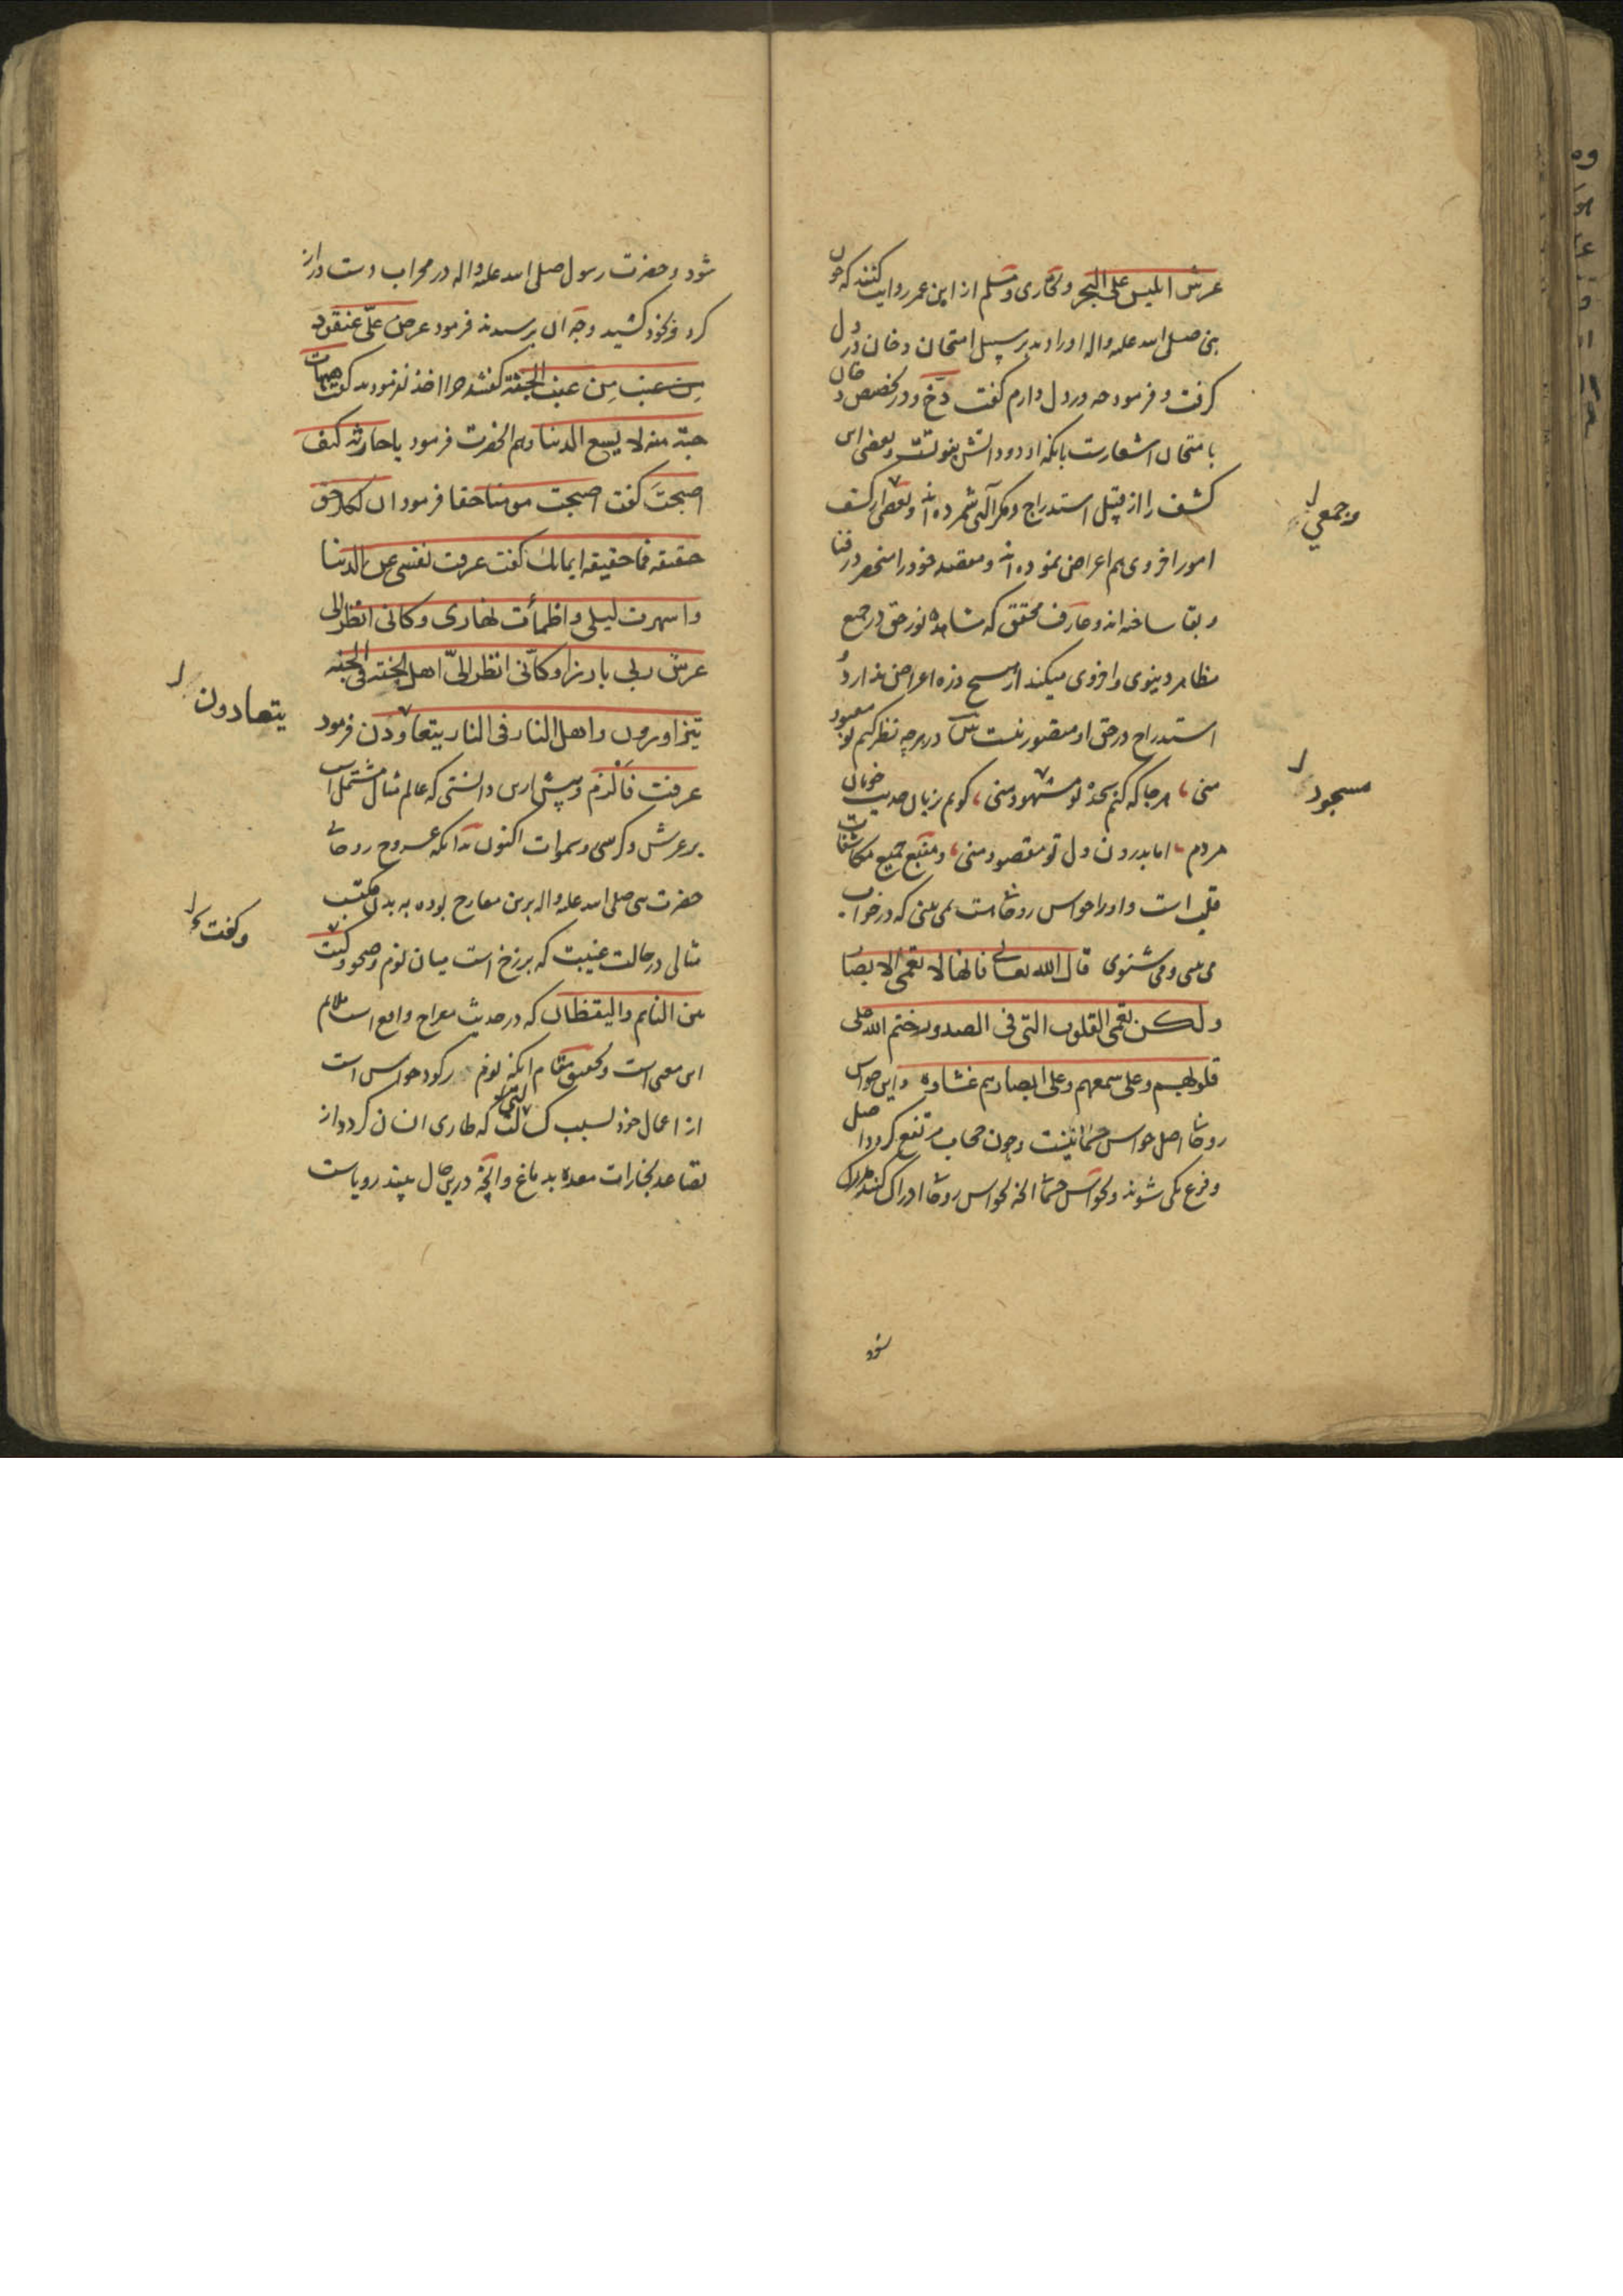 عرش ابلیس علی البحر و بخاری و مسلم از ابن عمر روایت کنند که چون
نبی صلی الله علیه واله او را دید بر سبیل امتحان دخان در دل
کرفت و فرمود چه در دل دارم کفت دخ و در تخصیص دخان
بامتحان اشعارست بانکه او دود اتش و بعضی این
کشف را از قبیل استدراج و مکر الهی شمرده اند و بعضی از کشف
امور اخروی هم اعراض نموده اند و مقصد خود را منحصر در فنا
و بقا ساخته اند و عارف محقق که مشاهده نور حق در جمیع
مظاهر دینوی و اخروی میکند از هیچ ذره اعراض ندارد و
استدراج در حق او متصور نیست بیت در هرچه نظر کنم تو معبود
منی هرجا که کنم سجده تو مشهود منی کویم بزبان حدیث خوبان
مردم اما بدرون دل تو مقصود منی و منبع جمیع مکاشفات
قلب است و او را حواس روحانی است نمی بینی که در خواب
می بینی و می شنوی قال الله تعالی فانها لا تعمی الابصار
ولکن تعمی القلوب التی فی الصدور ختم الله علی
قلوبهم وعلی سمعهم وعلی ابصارهم غشاوة و این حواس
روحانی اصل حواس جسمانیست و چون حجاب مرتفع کردد اصل
و فرع یکی شوند و بحواس جسمانی انچه بحواس روحانی ادراک کنند مدرک
شود
وجمعی
مسجود
شود و حضرت رسول صلی الله علیه واله در محراب دست دراز
کرد و بخود کشید وجه ان پرسیدند فرمود عرض علی عنقود
من عنب من عنب الجنة کفتند چرا اخذ نفرمودید کفت هیهات
حبة منه لا یسع الدنیا و هم الحضرت فرمود یا حارثه کیف
اصبحت کفت اصبحت مومنا حقا فرمود ان لکل حق
حقیقه فما حقیقه ایمانک کفت عرفت نفسی عن الدنیا
واسهرت لیلی واظمأت نهاری وکانی انظر الی
عرش ربی بارزا وکانی انظر الی اهل الجنة فی الجنه
یتزاورون واهل النار فی النار یتعاودن فرمود
عرفت فالزم و پیش ازین دانستی که عالم مثال مشتمل است
بر عرش و کرسی و سموات اکنون بدانکه عروج روحانی
حضرت نبی صلی الله علیه واله برین معارج بوده به بدن مکتسب
مثالی در حالت غیبت که برزخ است میان نوم و صحو و کنت
بین النایم والیقظان که در حدیث معراج واقع است ملایم
این معنی است و تحقیق مقام انکه نوم رکود حواس است
از اعمال خود بسبب که طاری انسان کردد از
تصاعد بخارات معده بدماغ و انچه درین حال بیند رویاست
یتعادون
وکفت